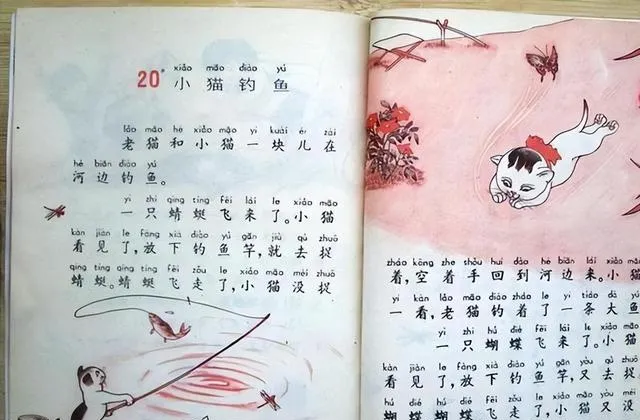 xiǎo māo diào yú
20 小猫钓鱼
lǎo māo hé xiǎo māo yí kuài ér zài
老猫和小猫一块儿在
hé biān diào yú
河边钓鱼。
yì zhī qīng tíng fēi lái le xiǎo māo
一只蜻蜓飞来了。小猫
kàn jiàn le fàng xià diào yú gān jiù qù zhuō
看见了，放下钓鱼竿，就去捉
qīng tíng qīng tíng fēi zǒu le xiǎo māo méi zhuō
蜻蜓。蜻蜓飞走了，小猫没捉
zháo kōng zhe shǒu huí dào hé biān lái xiǎo māo
着，空着手回到河边来。小猫
yí kàn lǎo māo diào zháo le yì tiáo dà yú
一看，老猫钓着了一条大鱼
yì zhī hú dié fēi lái le xiǎo māo
一只蝴蝶飞来了。小猫
kàn jiàn le fàng xià diào yú gān yòu qù zhuō
看见了，放下钓鱼竿，又去捉
hú dié hú dié fēi zǒu le xiǎo māo yòu méi
蝴蝶。蝴蝶飞走了，小猫又没